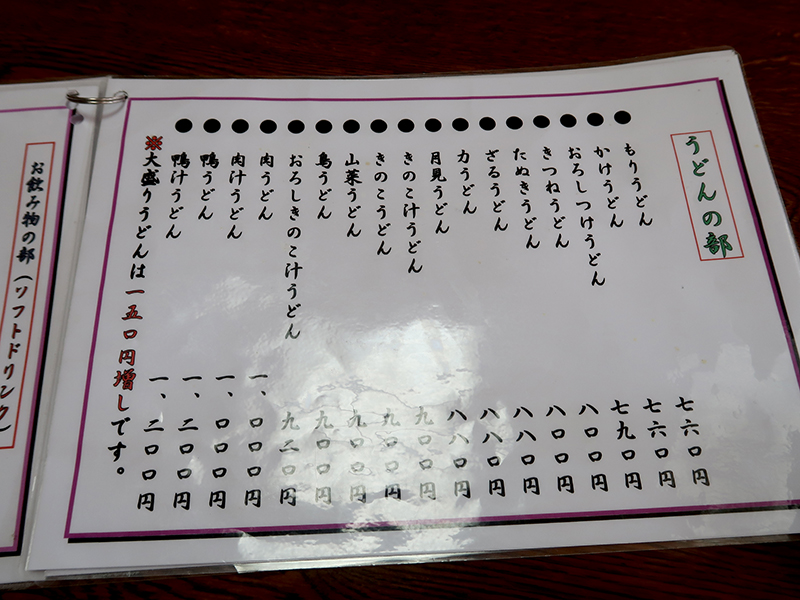 うどんの部
● もりうどん 七六〇円
● かけうどん 七六〇円
● おろしつけうどん 七九〇円
● きつねうどん 八〇〇円
● たぬきうどん 八〇〇円
● ざるうどん 八八〇円
● 力うどん 八八〇円
● 月見うどん 八八〇円
● きのこ汁うどん 九〇〇円
● きのこうどん 九〇〇円
● 山菜うどん 九〇〇円
● 鳥うどん 九〇〇円
● おろしきのこ汁うどん 九二〇円
● 肉うどん 一、〇〇〇円
● 肉汁うどん 一、〇〇〇円
● 鴨うどん 一、二〇〇円
● 鴨汁うどん 一、二〇〇円
※大盛りうどんは一五〇円増しです。
お飲み物の部(ソフトドリンク)